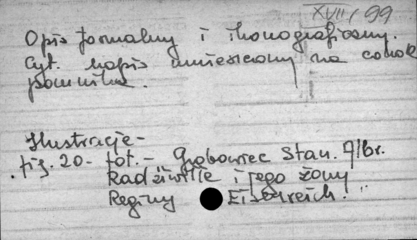 XVII/99
Opis formalny i ikonograficzny.
Cyt. napis umieszczony na cokole
pomnika.
Ilustracje -
fig. 20 - fot. - Grobowiec Stan. Albr.
Radziwiłła i jego żony
Reginy Eisenreich.